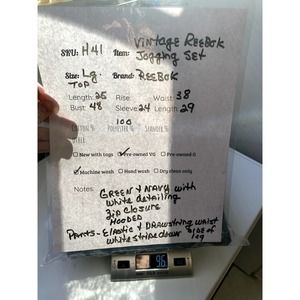 SKU: H41 Item: Vintage Reebok
Jogging Set
Size: Lg. Brand: Reebok
Top
Length: 25 Rise: Waist: 38
Bust: 48 Sleeve: 24 Length: 29
100
Cotton % Polyester % Spandex %
☐ New with tags ☑ Pre-owned VG ☐ Pre-owned G
☑ Machine wash ☐ Hand wash ☐ Dry clean only
Notes: Green & Navy with
white detailing
Zip closure
Hooded
Pants - Elastic & Drawstring waist
white stripe down side of leg
96